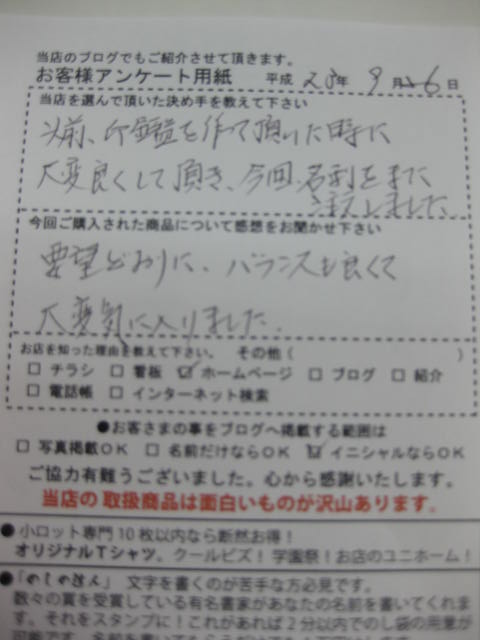 当店のブログでもご紹介させて頂きます。
お客様アンケート用紙 平成 23年 9月26日
当店を選んで頂いた決め手を教えて下さい
以前、印鑑を作って頂いた時に
大変良くして頂き、今回名刺をまた
注文しました
今回ご購入された商品について感想をお聞かせ下さい
要望どおりに、バランスも良くて
大変気に入りました。
お店を知った理由を教えて下さい。 その他（ ）
□ チラシ □ 看板 ☑ ホームページ □ ブログ □ 紹介
□ 電話帳 □ インターネット検索
●お客さまの事をブログへ掲載する範囲は
□ 写真掲載OK □ 名前だけならOK ☑ イニシャルならOK
ご協力有難うございました。心から感謝いたします。
当店の 取扱商品は面白いものが沢山あります。
● 小ロット専門 10 枚以内なら断然お得！
オリジナルTシャツ。クールビズ！ 学園祭！お店のユニホーム！
●「のしの達人」 文字を書くのが苦手な方必見です。
数々の賞を受賞している有名書家があなたの名前を書いてくれま
す。それをスタンプに！これがあれば2分以内でのし袋の用意が